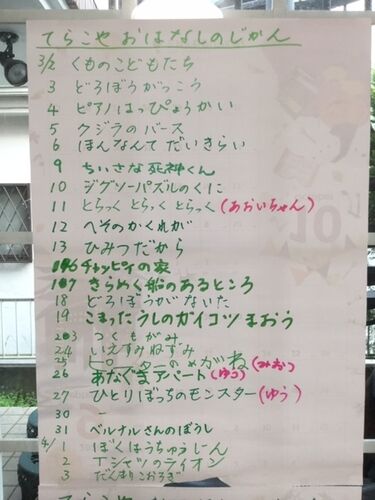 てらこや おはなしのじかん
3/2 くものこどもたち
3 どろぼうがっこう
4 ピアノはっぴょうかい
5 クジラのバース
6 ほんなんてだいきらい
9 ちいさな死神くん
10 ジグソーパズルのくに
11 とらっく とらっく とらっく (あおいちゃん)
12 へそのかくれが
13 ひみつだから
16 チャッピィの家
17 きらめく船のあるところ
18 どろぼうがないた
19 こまったうしのガイコツまおう
23 つくもがみ
24 いえすみねずみ
25 ピーターのめがね (みおつ
26 あなぐまアパート (ゆう)
27 ひとりぼっちのモンスター (ゆう)
30 ー
31 ベルナルさんのぼうし
4/1 ぼくはうちゅうじん
2 Tシャツのライオン
3 だんまりこおろぎ